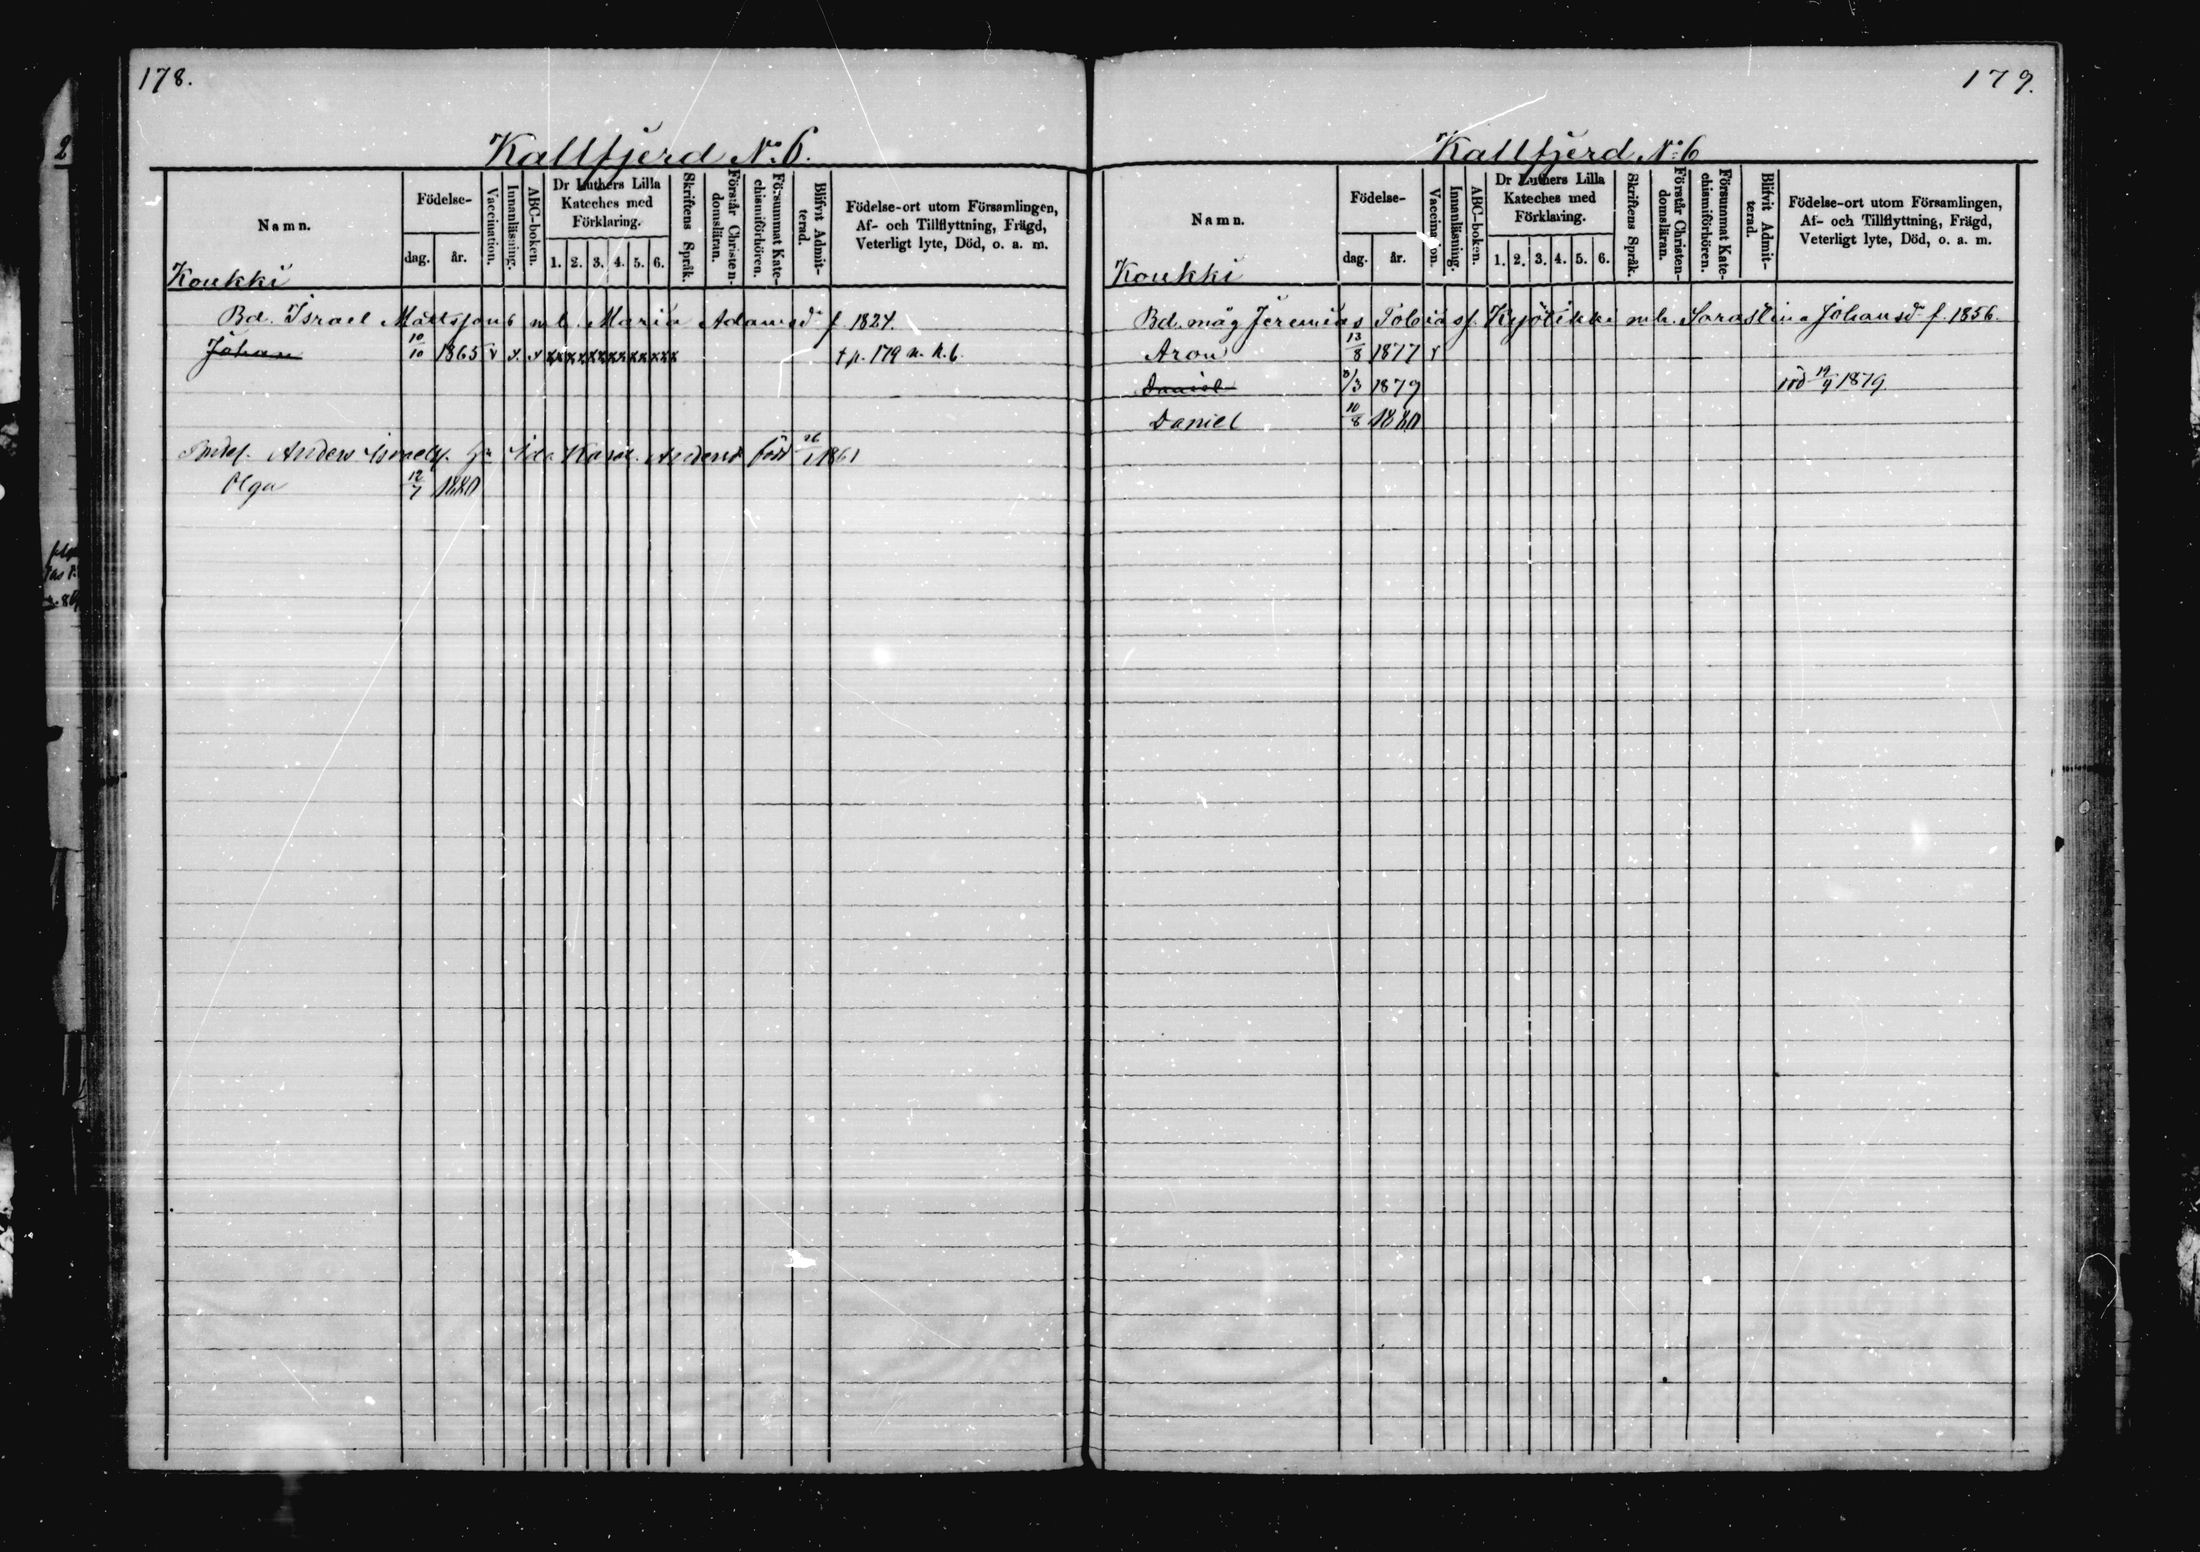 178.
Kallfjerd No 6.
Namn.
Födelse-
dag.
år.
Vaccination.
Innanläsning.
ABC-boken.
Dr Luthers Lilla
Kateches med
Förklaring.
1. 2. 3. 4. 5. 6.
Skriftens Språk.
Förstår Christen-
domsläran.
Försummat Kate-
chismiförhören.
Blifvit Admit-
terad.
Födelse-ort utom Församlingen,
Af- och Tillflyttning, Frägd,
Veterligt lyte, Död, o. a. m.
Koukki
Bd. Israel Mattsson m. h. Maria Adamsdr f. 1824.
Johan 10/10 1865 v x x x x x x x x x x x x x x p. 179 n. k. b.
Anders Israels. Ida Karol. Andersd. född 26/1 1861
Olga 12/7 1880
179.
Kallfjerd No 6
Namn.
Födelse-
dag.
år.
Vaccination.
Innanläsning.
ABC-boken.
Dr Luthers Lilla
Kateches med
Förklaring.
1. 2. 3. 4. 5. 6.
Skriftens Språk.
Förstår Christen-
domsläran.
Försummat Kate-
chismiförhören.
Blifvit Admit-
terad.
Födelse-ort utom Församlingen,
Af- och Tillflyttning, Frägd,
Veterligt lyte, Död, o. a. m.
Koukki
Bd. måg Jeremias Tobiasf. m. h. Sarastina Johansdr f. 1856.
Aron 13/8 1877 v
Daniel 8/3 1879 död 19/9 1879.
Daniel 10/8 1880